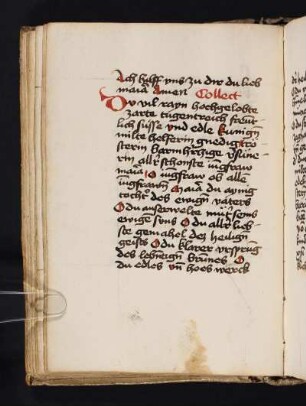 Ach hilff vns zu dir du lieb
maria Amen Collect
Du vil rayn hochgelobte
zarte tugentreich freut
lich süsse vnd edle kunigin
milte helferin gnedig tro
sterin Barmhertzige süne
rin aller schonste iungfraw
maria O iungfraw ob alle
iungfrawn Maria du aynig
tochter des ewigen vaters
O du auserwelte muter seins
ewigen sons O du aller lieb
ste gemahel dez heiligen
geists O du klarer vrsprung
des lebendigen brunnes O
du edles vnd hoes werck